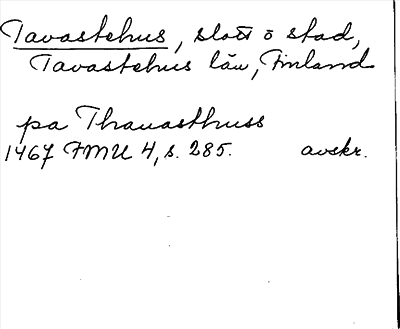 Tavastehus, slott o stad,
Tavastehus län, Finland
pa Thauasthuss
1467 FMU 4, s. 285. avskr.